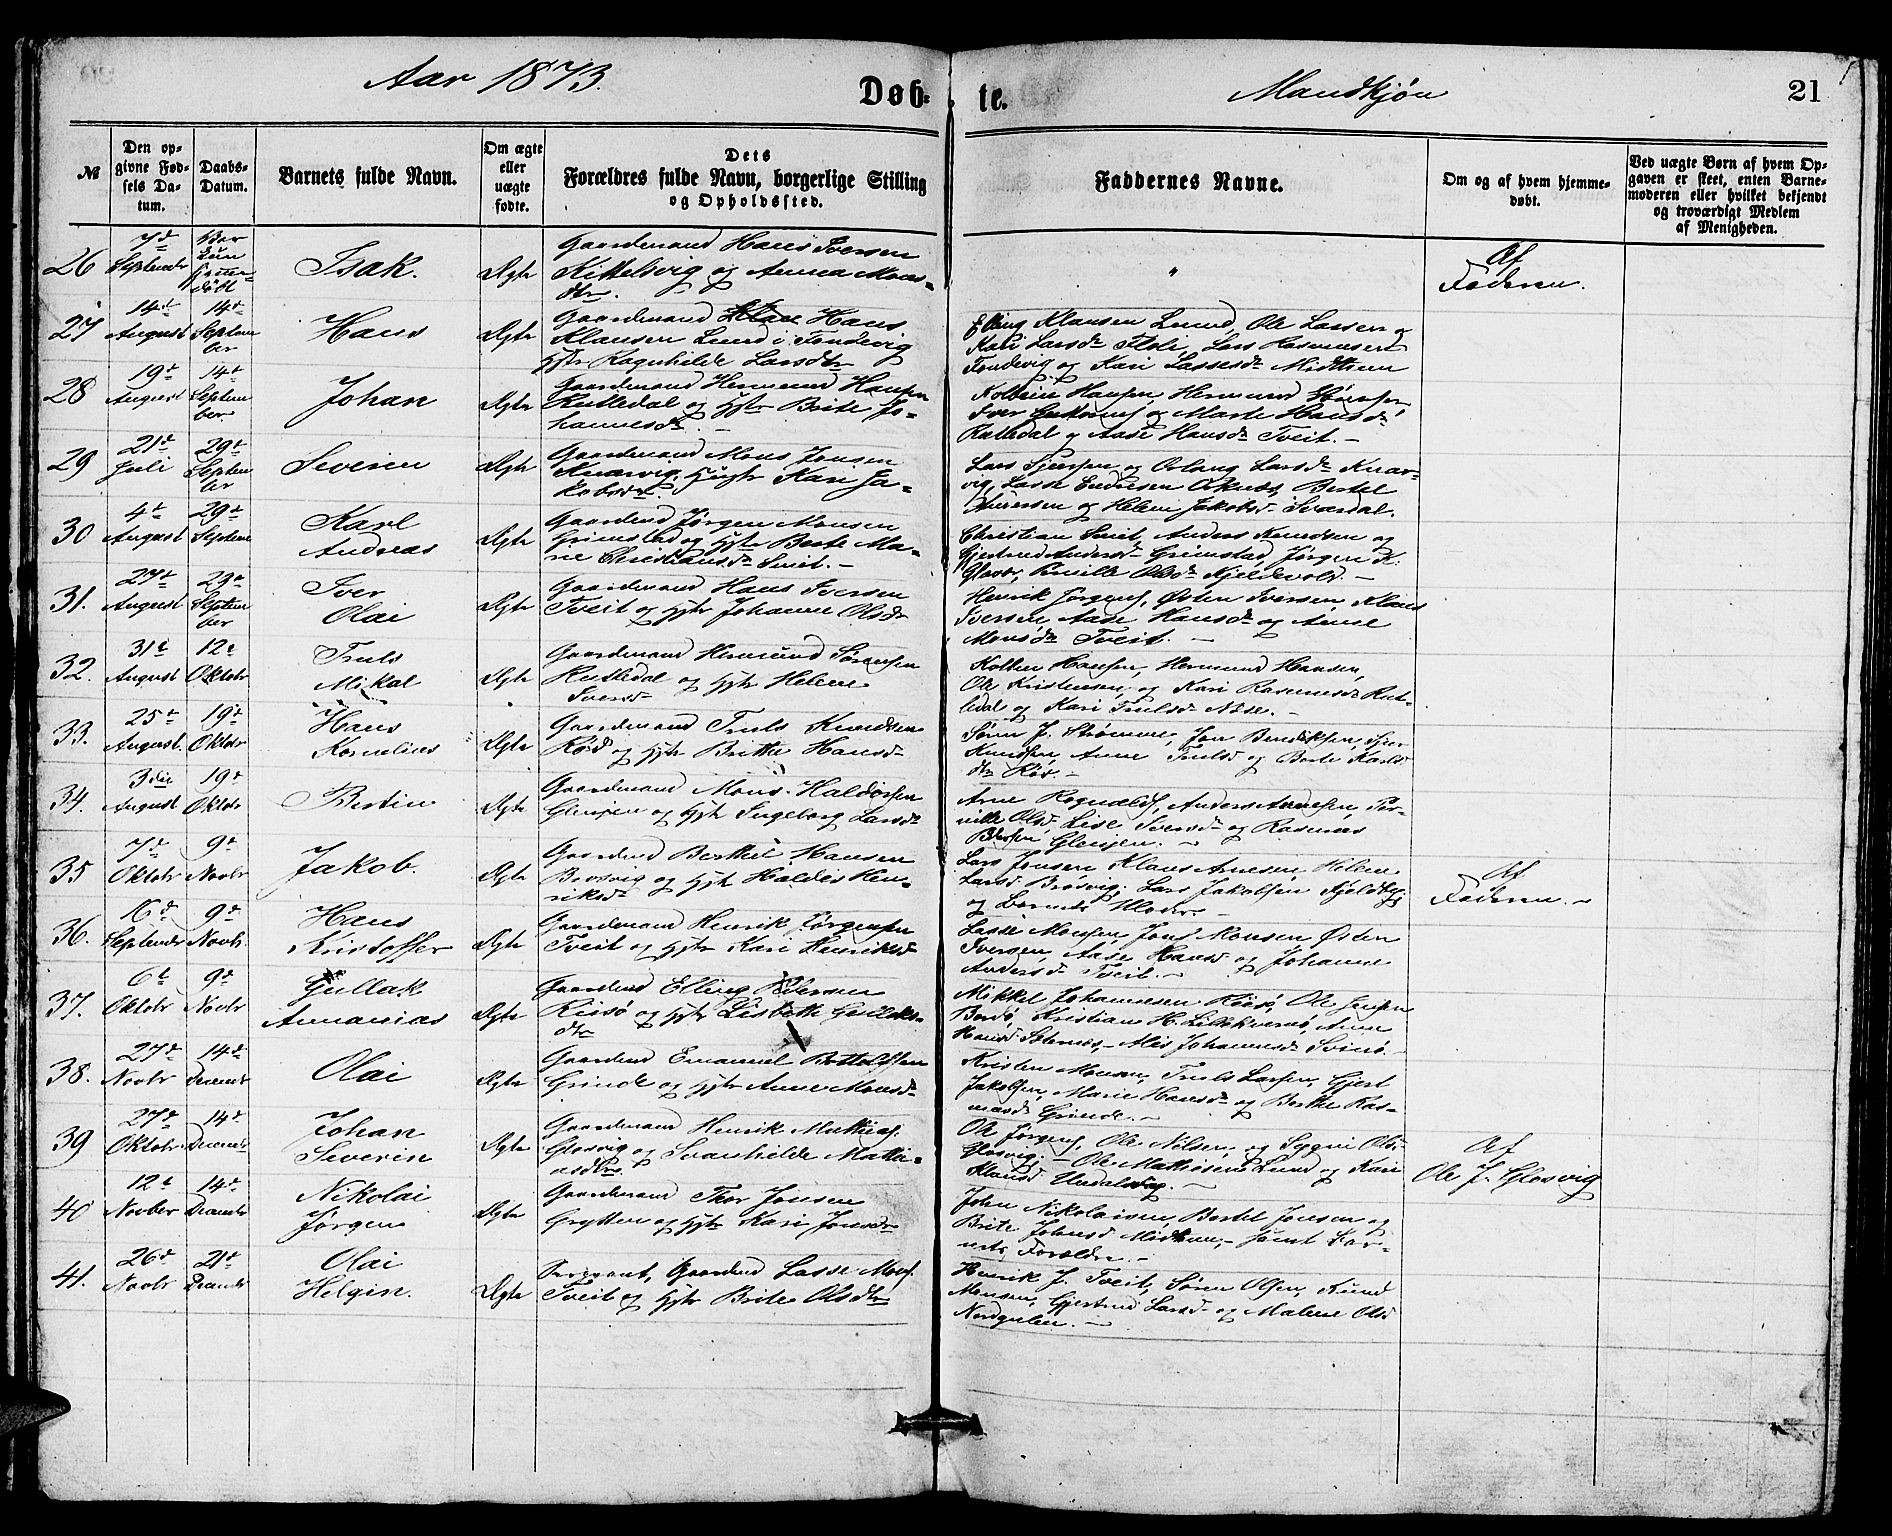 Aar 1873.
Døb=
te.
Mandkjøn
21
№
Den op-
givne Fød-
sels Da-
tum.
Daabs-
Datum.
Barnets fulde Navn.
Om ægte
eller
uægte
fødte.
Dets
Forældres fulde Navn, borgerlige Stilling
og Opholdssted.
Faddernes Navne.
Om og af hvem hjemme-
døbt.
Ved uægte Børn af hvem Op-
gaven er skeet, enten Barne-
moderen eller hvilket bekjendt
og troværdigt Medlem
af Menigheden.
26
7d
September
Bar
kun
døbt
Isak.
Ægte
Gaardmand Hans Iversen
og Anna Mons-
dtr.
"
Af
Faderen.
27
14de
August
14de
Septem
ber
Hans
Ægte
Gaardmand Hans
Klausen Lund i
Hstr Ragnhilde Larsdtr
Elling Klausen Lund, Ole Larsen og
Kari Larsdr Lars Rasmusen
og Kari Lassesdr Midttun
28
19de
August
14de
Septem
ber.
Johan
Ægte
Gaardmand Hermund Hansen
Rutledal og Hstr Brite Jo-
hannesdr. -
Kolbein Hansen, Hermund
Iver og Marte Hansdr
Rutledal og Aase Hansdr Tveit. -
29
21de
Juli
29de
Septem
ber
Severin
Ægte
Gaardmand Mons Jonsen
Knarvig, Hstr Kari Ja-
kobsdr.
Lars og Larsdr Knar-
vig, Lasse Bertel
og Helene Jakobsdr
30
4de
August
29de
Septem
Karl
Andreas
Ægte
Gaardmd Jørgen Monsen
Grimstad og Hstr Berte Ma-
rie Christiansdr Smit. -
Christian Smit, Anders Knudsen og
Gjertrud Andersdr Grimstad, Jørgen K.
Pernille Olsdr Kjeldevold. -
31.
27de
August
29de
Septem
ber
Iver
Olai
Ægte
Gaardmand Hans Iversen
Tveit og Hstr Johanne Olsdr
Henrik Jørgens, Østen Iversen, Klaus
Iversen, Aase Hansdr og Anne
Monsdr Tveit. -
32.
31te
August
12te
Oktobr
Truls
Mikal
Ægte
Gaardmand Hermund Sørensen
Rutledal og Hstr Helene
Iversdr
Kolbein Hansen, Hermund Hansen,
Ole Kristensen, og Kari Rasmusdr Rut-
ledal og Kari Trulsdr -
33.
25de
August.
19de
Oktobr
Hans
Kornelius
Ægte
Gaardmand Truls Knudsen
Røid og Hstr Britte Hansdr
Søren J. Strømme, Jon Bendiksen,
Knudsen, Anne Trulsd og Berte Karls
dtr Røid. -
34.
3die
August
19de
Oktobr
Bertin
Ægte
Gaardmand Mons Haldorsen
Glenjen og Hstr Ingeborg Larsdr
Arne Anders Arnesen, Per-
nille Olsd, Lise Iversdr og Rasmus
Glenjen. -
35
7de
Oktobr
9de
Novbr
Jakob.
Ægte
Gaardmd Berthel Hansen
Brosvig og Hstr Haldis Hen-
riksdr
Lars Jonsen Klaus Arnesen Helene
Larsd Brosvig, Lars Jakobsen
og Barnets Moder -
Af
Faderen. -
36.
16de
Septembr
9de
Novbr.
Hans
Kristoffer
Ægte
Gaardmand Henrik Jørgensen
Tveit og Hstr Kari Henriksdr
Lasse Monsen, Jens Monsen Østen
Iversen, Aase Hansd og Johanne
Andersd Tveit. -
37.
6te
Oktobr
9de
Novbr
Gullak
Annanias
Ægte
Gaardmd Elling Petersen
Riisø og Hstr Lisbette Gullaks-
dtr
Mikkel Johannesen Riisø, Ole Jensen
Kristian H. Anne
Hansd Alis Johannesdr Svinø. -
38.
27de
Novbr
14de
Decembr
Olai
Ægte
Gaardmd Emanuel Botolfsen
Grinde og Hstr Anne Monsdr
Kristen Monsen, Truls Larsen, Gjert
Jakobsen, Marie Hansd og Berthe Ras-
musd Grinde. -
39
27de
Oktobr
14de
Decembr
Johan
Severin
Ægte
Gaardmand Henrik Mathias.
Glosvig og Svanhilde Mathi-
asdtr.
Ole Jørgens, Ole Nilsen, og Sygni Olsdr
Glosvig. - Ole Mathiesen Lund og Kari
Klausd -
Af
Ole J. Glosvig
40
12te
Novber
14de
Decembr
Nikolai
Jørgen
Ægte
Gaardmand Thor Jonsen
Grytten og Hstr Kari Jonsdr
John Nikolaisen, Bertel Jensen og
Brite Johnsd Midttun, - samt Bar-
nets Forældre. -
41.
26de
Novbr
21de
Decembr
Olai
Helgin.
Ægte
Gaardmd Lasse Mons.
Tveit og Hstr Brite Olsdtr
Henrik J. Tveit, Søren Olsen, Knud
Monsen, Gjertrud Larsd og Malene Olsd
Nordgulen. -